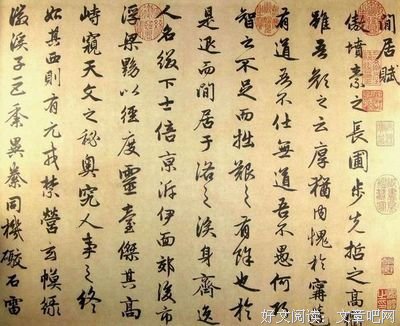 閒居賦
傲墳素之長圃步先哲之高衢
雖吾顏之云厚猶內愧於甯
有道吾不仕無道吾不愚何巧
智之不足而拙艱之有餘也於
是退而閒居于洛之涘身齊逸
人名綴下士倍京泝伊面郊後市
浮梁黝以徑度靈臺傑其高
峙窺天文之秘奧究人事之終
始其西則有元戎禁營玄幙綠
徽溪子巨黍異絭同機礮石雷
好文阅读：文章吧网